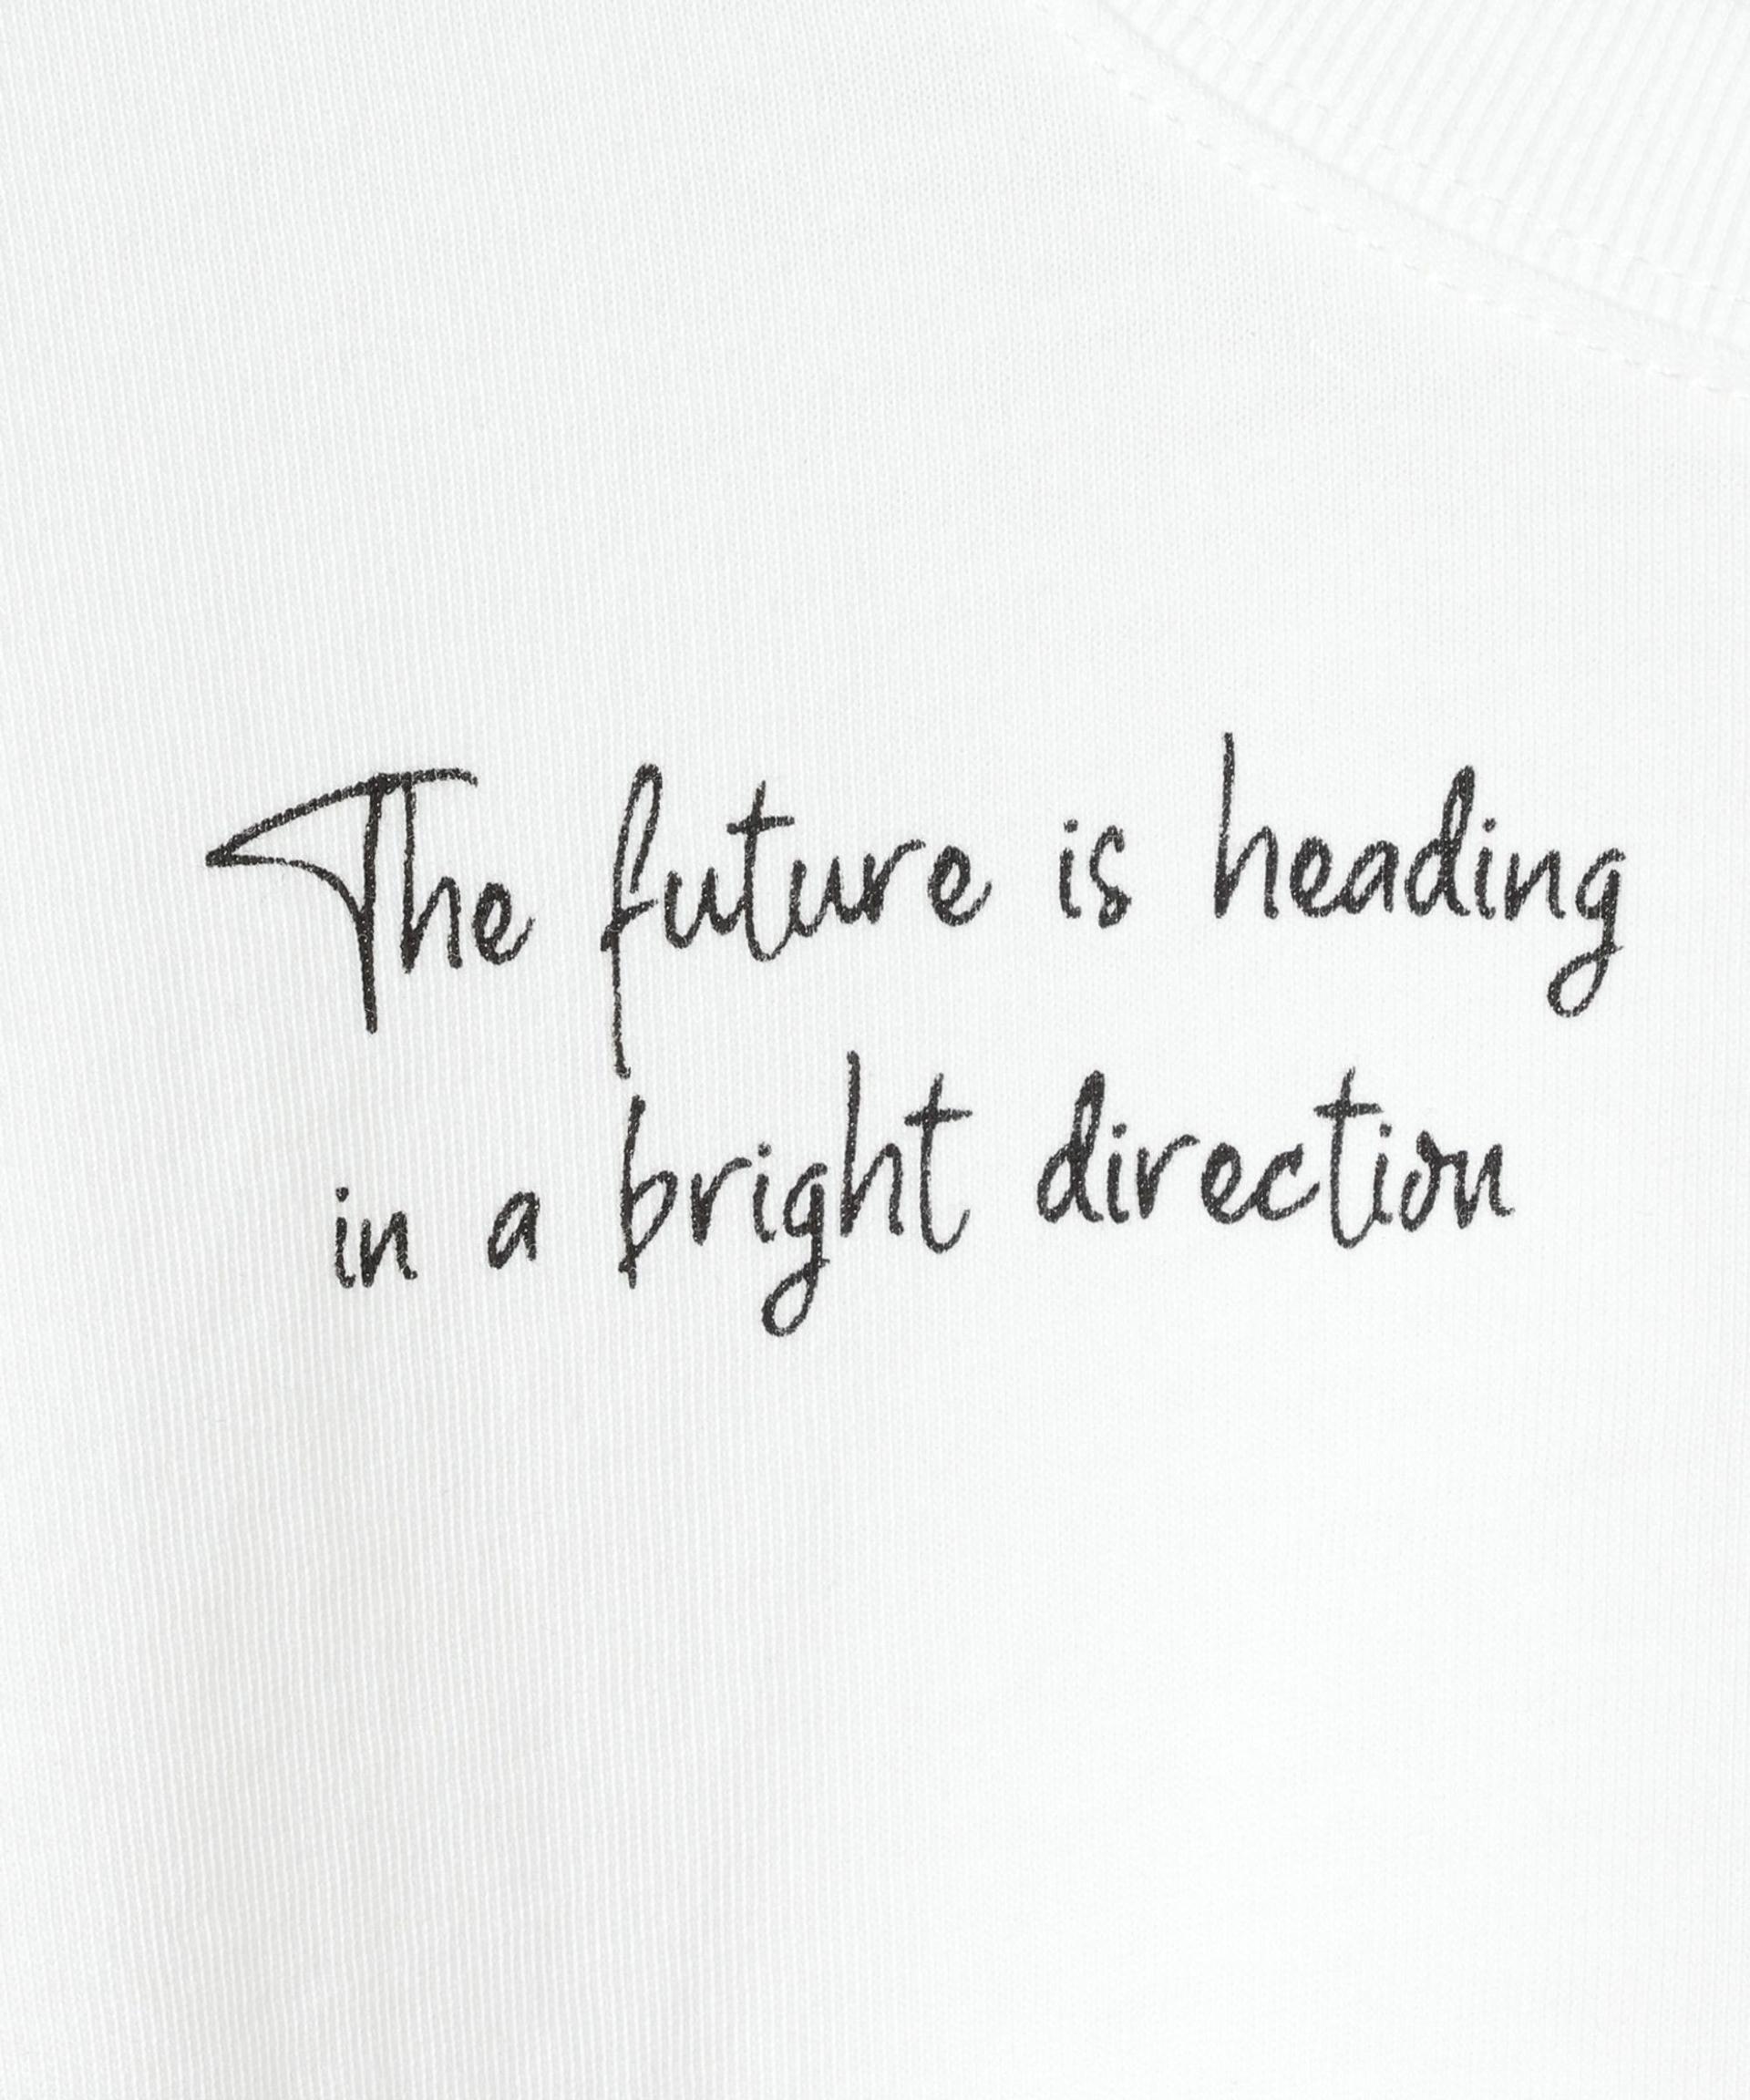 The future is heading
in a bright direction